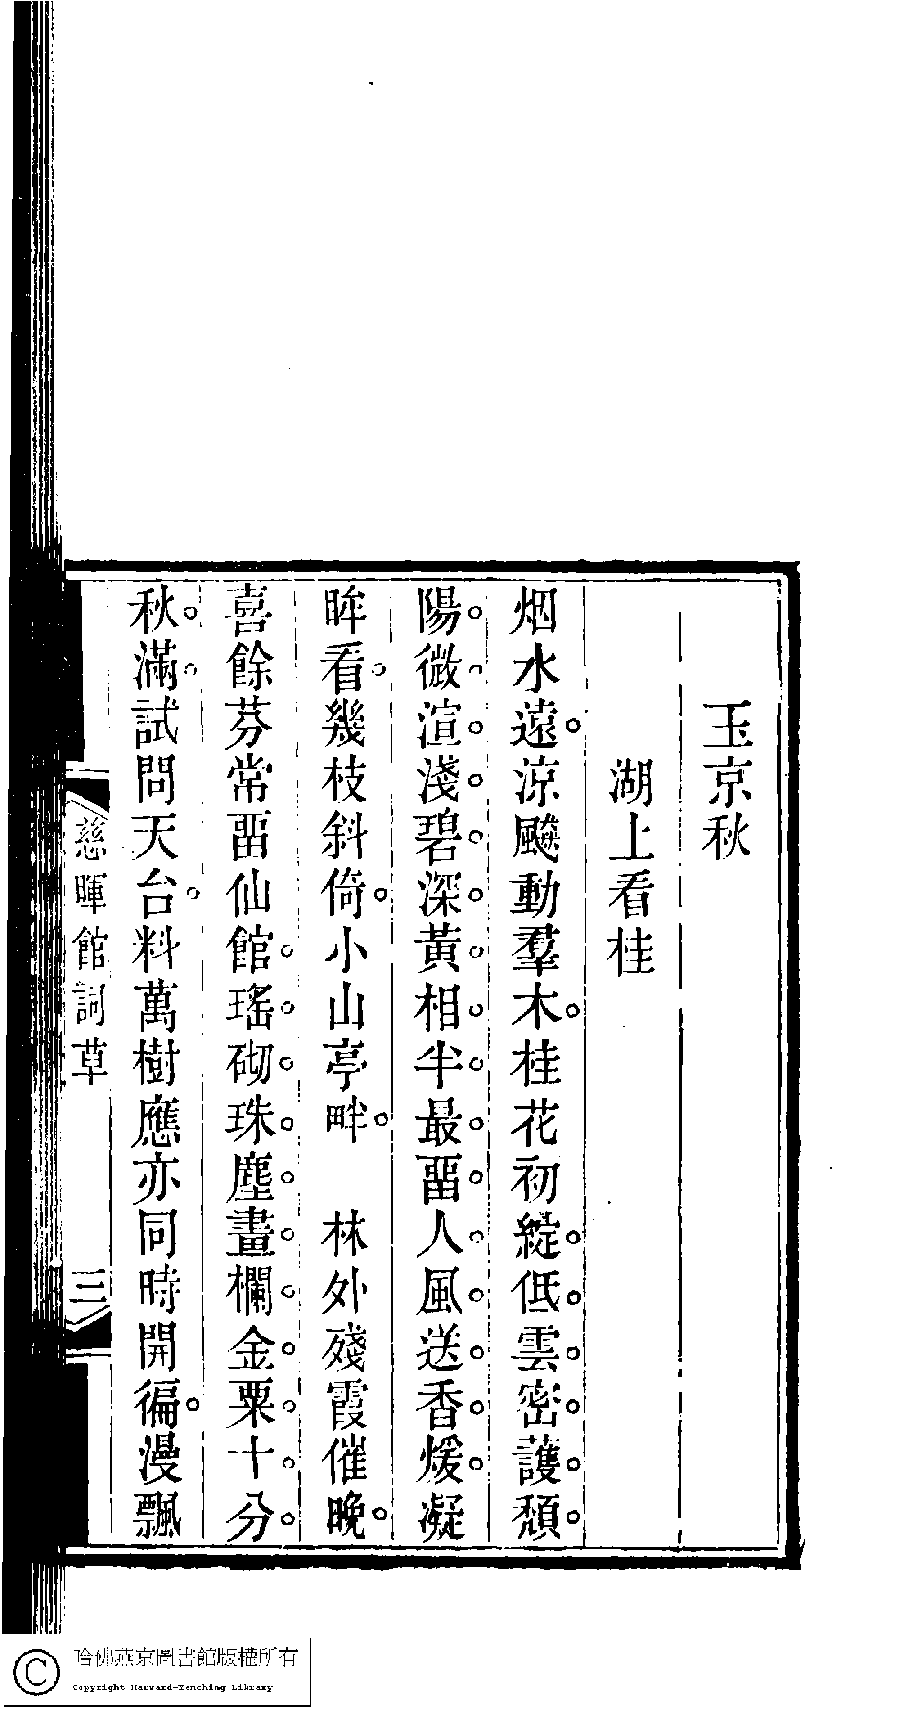 玉京秋
湖上看桂
烟水遠。涼颸動羣木。桂花初綻。低。雲。密。護。頹。
陽。微。渲。淺。碧。深。黃。相。半。最。畱。人。風。送。香。煖。凝
眸看。幾枝斜倚。小山亭畔。　林外殘霞催晚。
喜餘芬常畱仙館。瑤。砌。珠。塵。畫。欄。金。粟。十。分。
秋。滿。試問天台。料萬樹應亦同時開徧。漫飄
慈暉館詞草
三
哈佛燕京圖書館版權所有
Copyright Harvard-Yenching Library